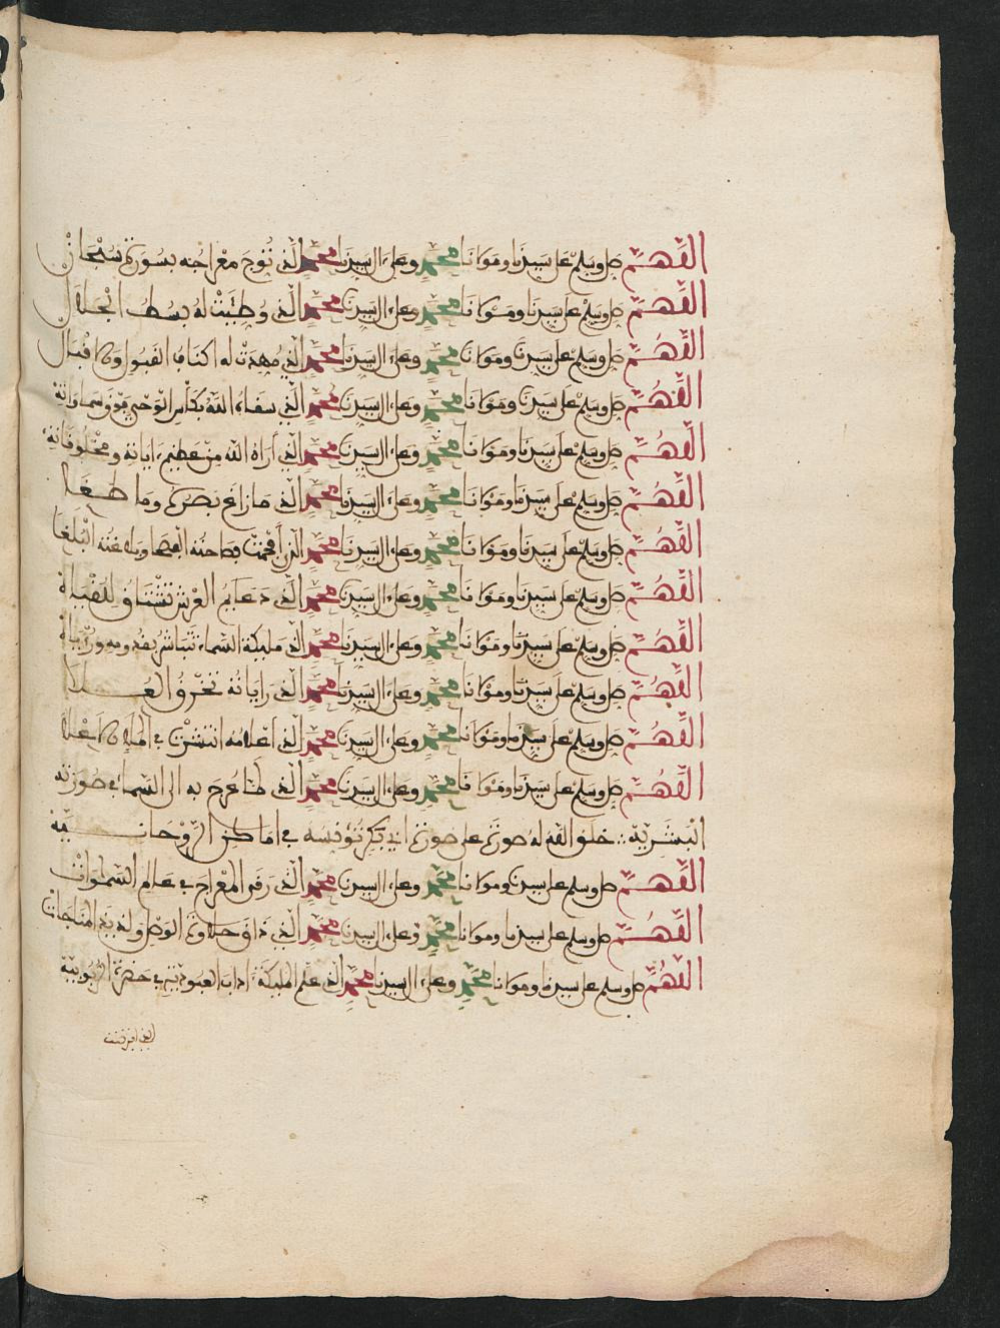 اللَّهُمَّ صل وسلم على سيدنا ومولانا محمد وعلى ءال سيدنا محمد الذي تُوِّجَ مِعْرَاجُه بسُورَة سُبْحَان
اللَّهُمَّ صل وسلم على سيدنا ومولانا محمد وعلى ءال سيدنا محمد الذي وُطِّئَتْ لهُ بُسُطُ الجْلال
اللَّهُمَّ صل وسلم على سيدنا ومولانا محمد وعلى ءال سيدنا محمد الذي مُهِدَتْ له اكناف القبول والاقبال
اللَّهُمَّ صل وسلم على سيدنا ومولانا محمد وعلى ءال سيدنا محمد الذي سقاه اللّهُ بكأس الوَحْيِ فوق سماواته
اللَّهُمَّ صل وسلم على سيدنا ومولانا محمد وعلى ءال سيدنا محمد الذي أَرَاهُ الله مِنْ عَظِيم ءاياته ومخلوقاته
اللَّهُمَّ صل وسلم على سيدنا ومولانا محمد وعلى ءال سيدنا محمد الذي ما زاغ بَصَرُهُ وما طغا
اللَّهُمَّ صل وسلم على سيدنا ومولانا محمد وعلى ءال سيدنا محمد الذي أفحمت فصاحته الفصحا وبلاغته البُلَغا
اللَّهُمَّ صل وسلم على سيدنا ومولانا محمد وعلى ءال سيدنا محمد الذي دعائم العرش تشتاق للقياه
اللَّهُمَّ صل وسلم على سيدنا ومولانا محمد وعلى ءال سيدنا محمد الذي مليكة السماء تتباشر بقدومه
اللَّهُمَّ صل وسلم على سيدنا ومولانا محمد وعلى ءال سيدنا محمد الذي رَايَاتُه تخرق العُلا
اللَّهُمَّ صل وسلم على سيدنا ومولانا محمد وعلى ءال سيدنا محمد الذي اعْلامُه انتشرت في الملإ الاعْلا
اللَّهُمَّ صل وسلم على سيدنا ومولانا محمد وعلى ءال سيدنا محمد الذي لمّا عُرِجَ به الى السّماء في صُورَته
البشَرِيّة خلق الله لهُ صورة على صورة ابي بكر تُؤنِسُه في اماكن الرّوْحانيّة
اللَّهُمَّ صل وسلم على سيدنا ومولانا محمد وعلى ءال سيدنا محمد الذي رَقَى المعْرَاج في عالم السّمٰوَات
اللَّهُمَّ صل وسلم على سيدنا ومولانا محمد وعلى ءال سيدنا محمد الذي ذاق حلاوة الوصل ولذيذ المناجات
اللَّهُمَّ صل وسلم على سيدنا ومولانا محمد وعلى ءال سيدنا محمد الذي علّم المليكة ءاداب العبوديّة في حضرة الرّبُوبيّة